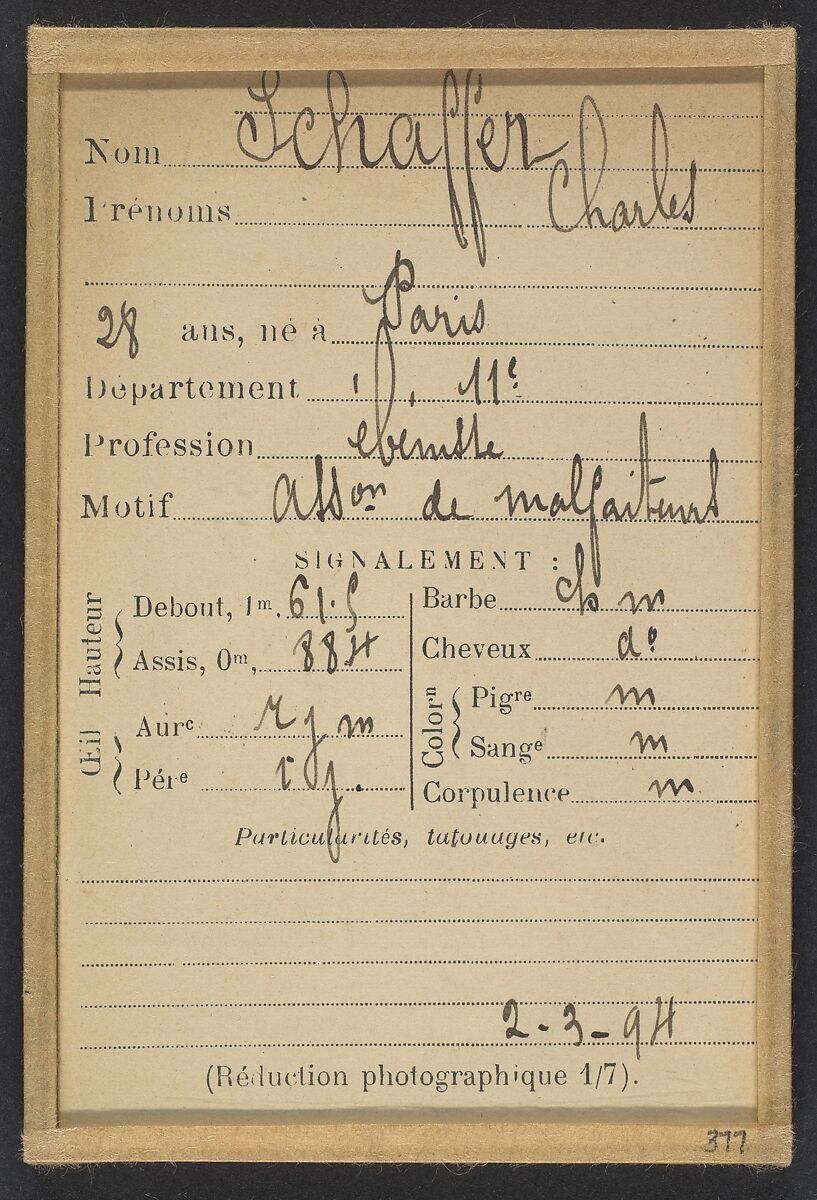 Nom Schaffer
Prénoms Charles
28 ans, né à Paris
Département id. 11e
Profession ébéniste
Motif Asson de malfaiteurs
SIGNALEMENT :
Hauteur
Debout, 1m. 61.5
Assis, 0m, 884
Œil
Aure r j m
Pére r j.
Barbe ch m
Cheveux do
Colorn
Pigre m
Sange m
Corpulence m
Particularités, tatouages, etc.
2-3-94
(Réduction photographique 1/7).
377